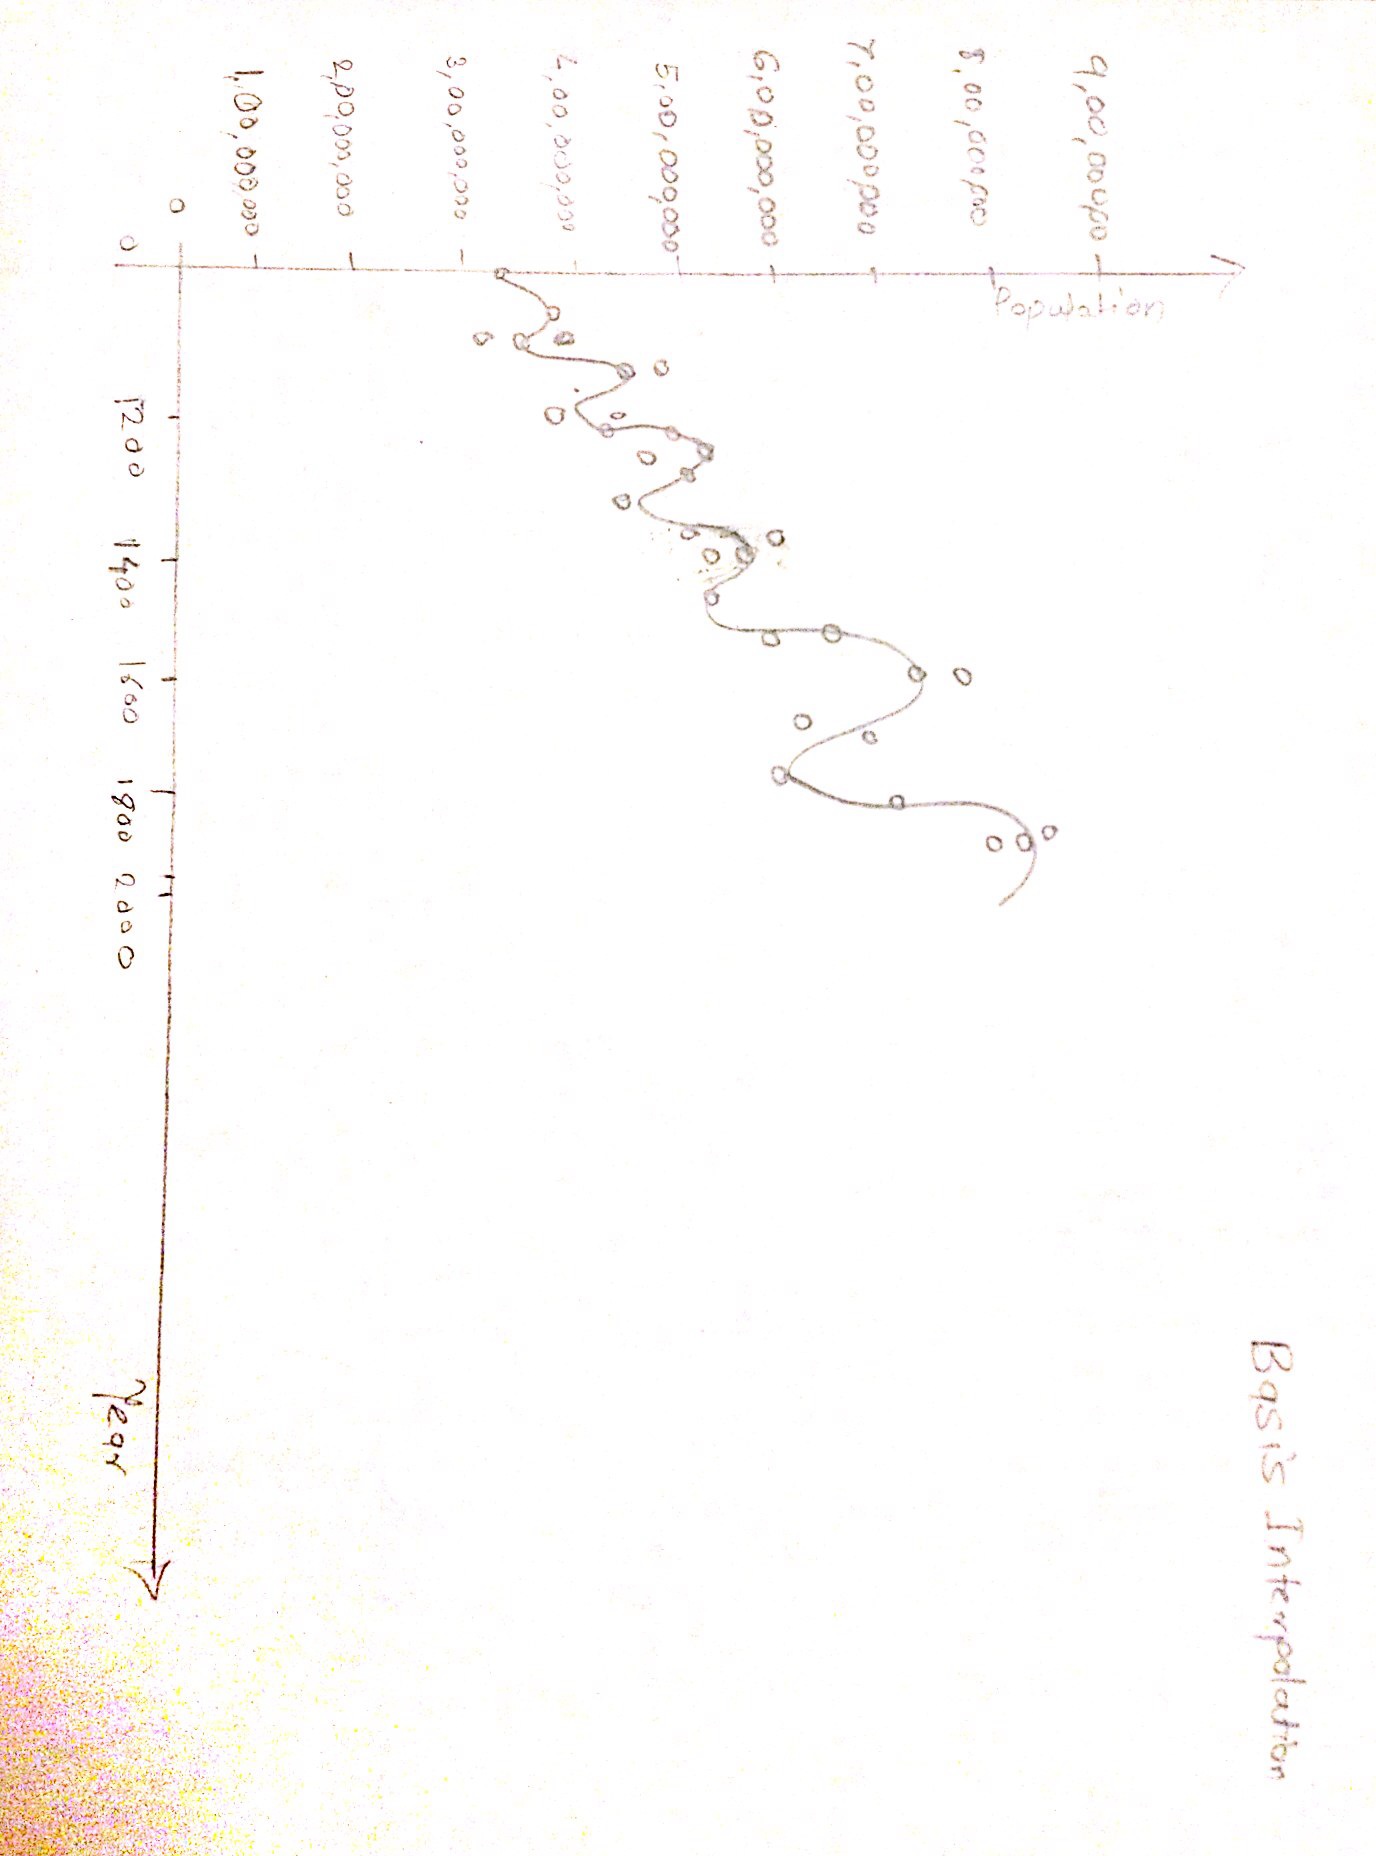 Basis Interpolation
Population
9,00,000,000
8,00,000,000
7,00,000,000
6,00,000,000
5,00,000,000
4,00,000,000
3,00,000,000
2,00,000,000
1,00,000,000
0
0 1200 1400 1600 1800 2000
Year